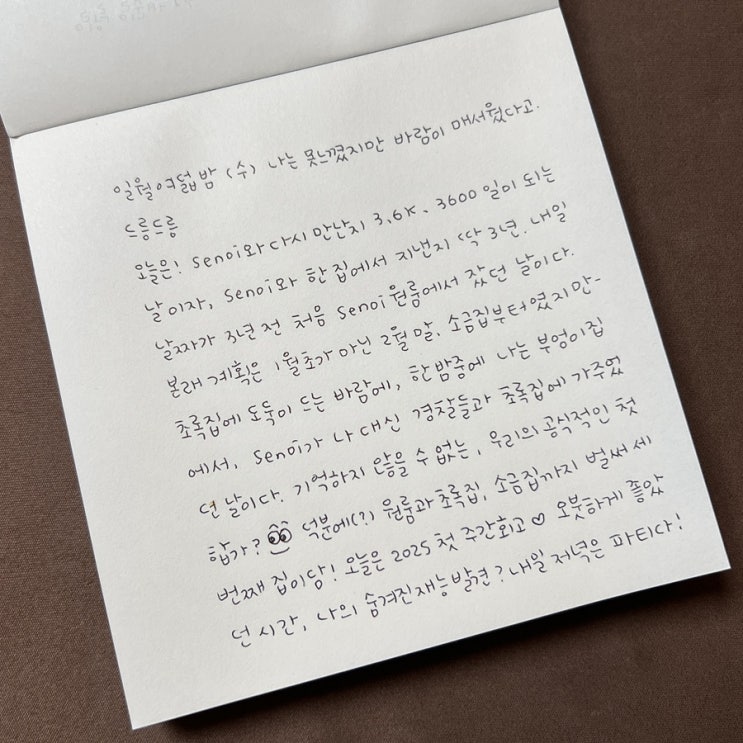 일월여덟밤 (수) 나는 못느꼈지만 바람이 매서웠다고.
드릉드릉
오늘은! Senoi와 다시 만난지 3.6K, 3600일이 되는
날이자, Senoi와 한 집에서 지낸지 딱 3년. 내일
날짜가 3년 전 처음 Senoi 원룸에서 잤던 날이다.
본래 계획은 1월초가 아닌 2월 말, 소금집부터였지만-
초록집에 도둑이 드는 바람에, 한밤중에 나는 부엉이집
에서, Senoi가 나 대신 경찰들과 초록집에 가주었
던 날이다. 기억하지 않을 수 없는, 우리의 공식적인 첫
합가? 덕분에(?) 원룸과 초록집, 소금집까지 벌써 세
번째 집이당! 오늘은 2025 첫 주간회고♡ 오붓하게 좋았
던 시간, 나의 숨겨진재능발견? 내일 저녁은 파티다!